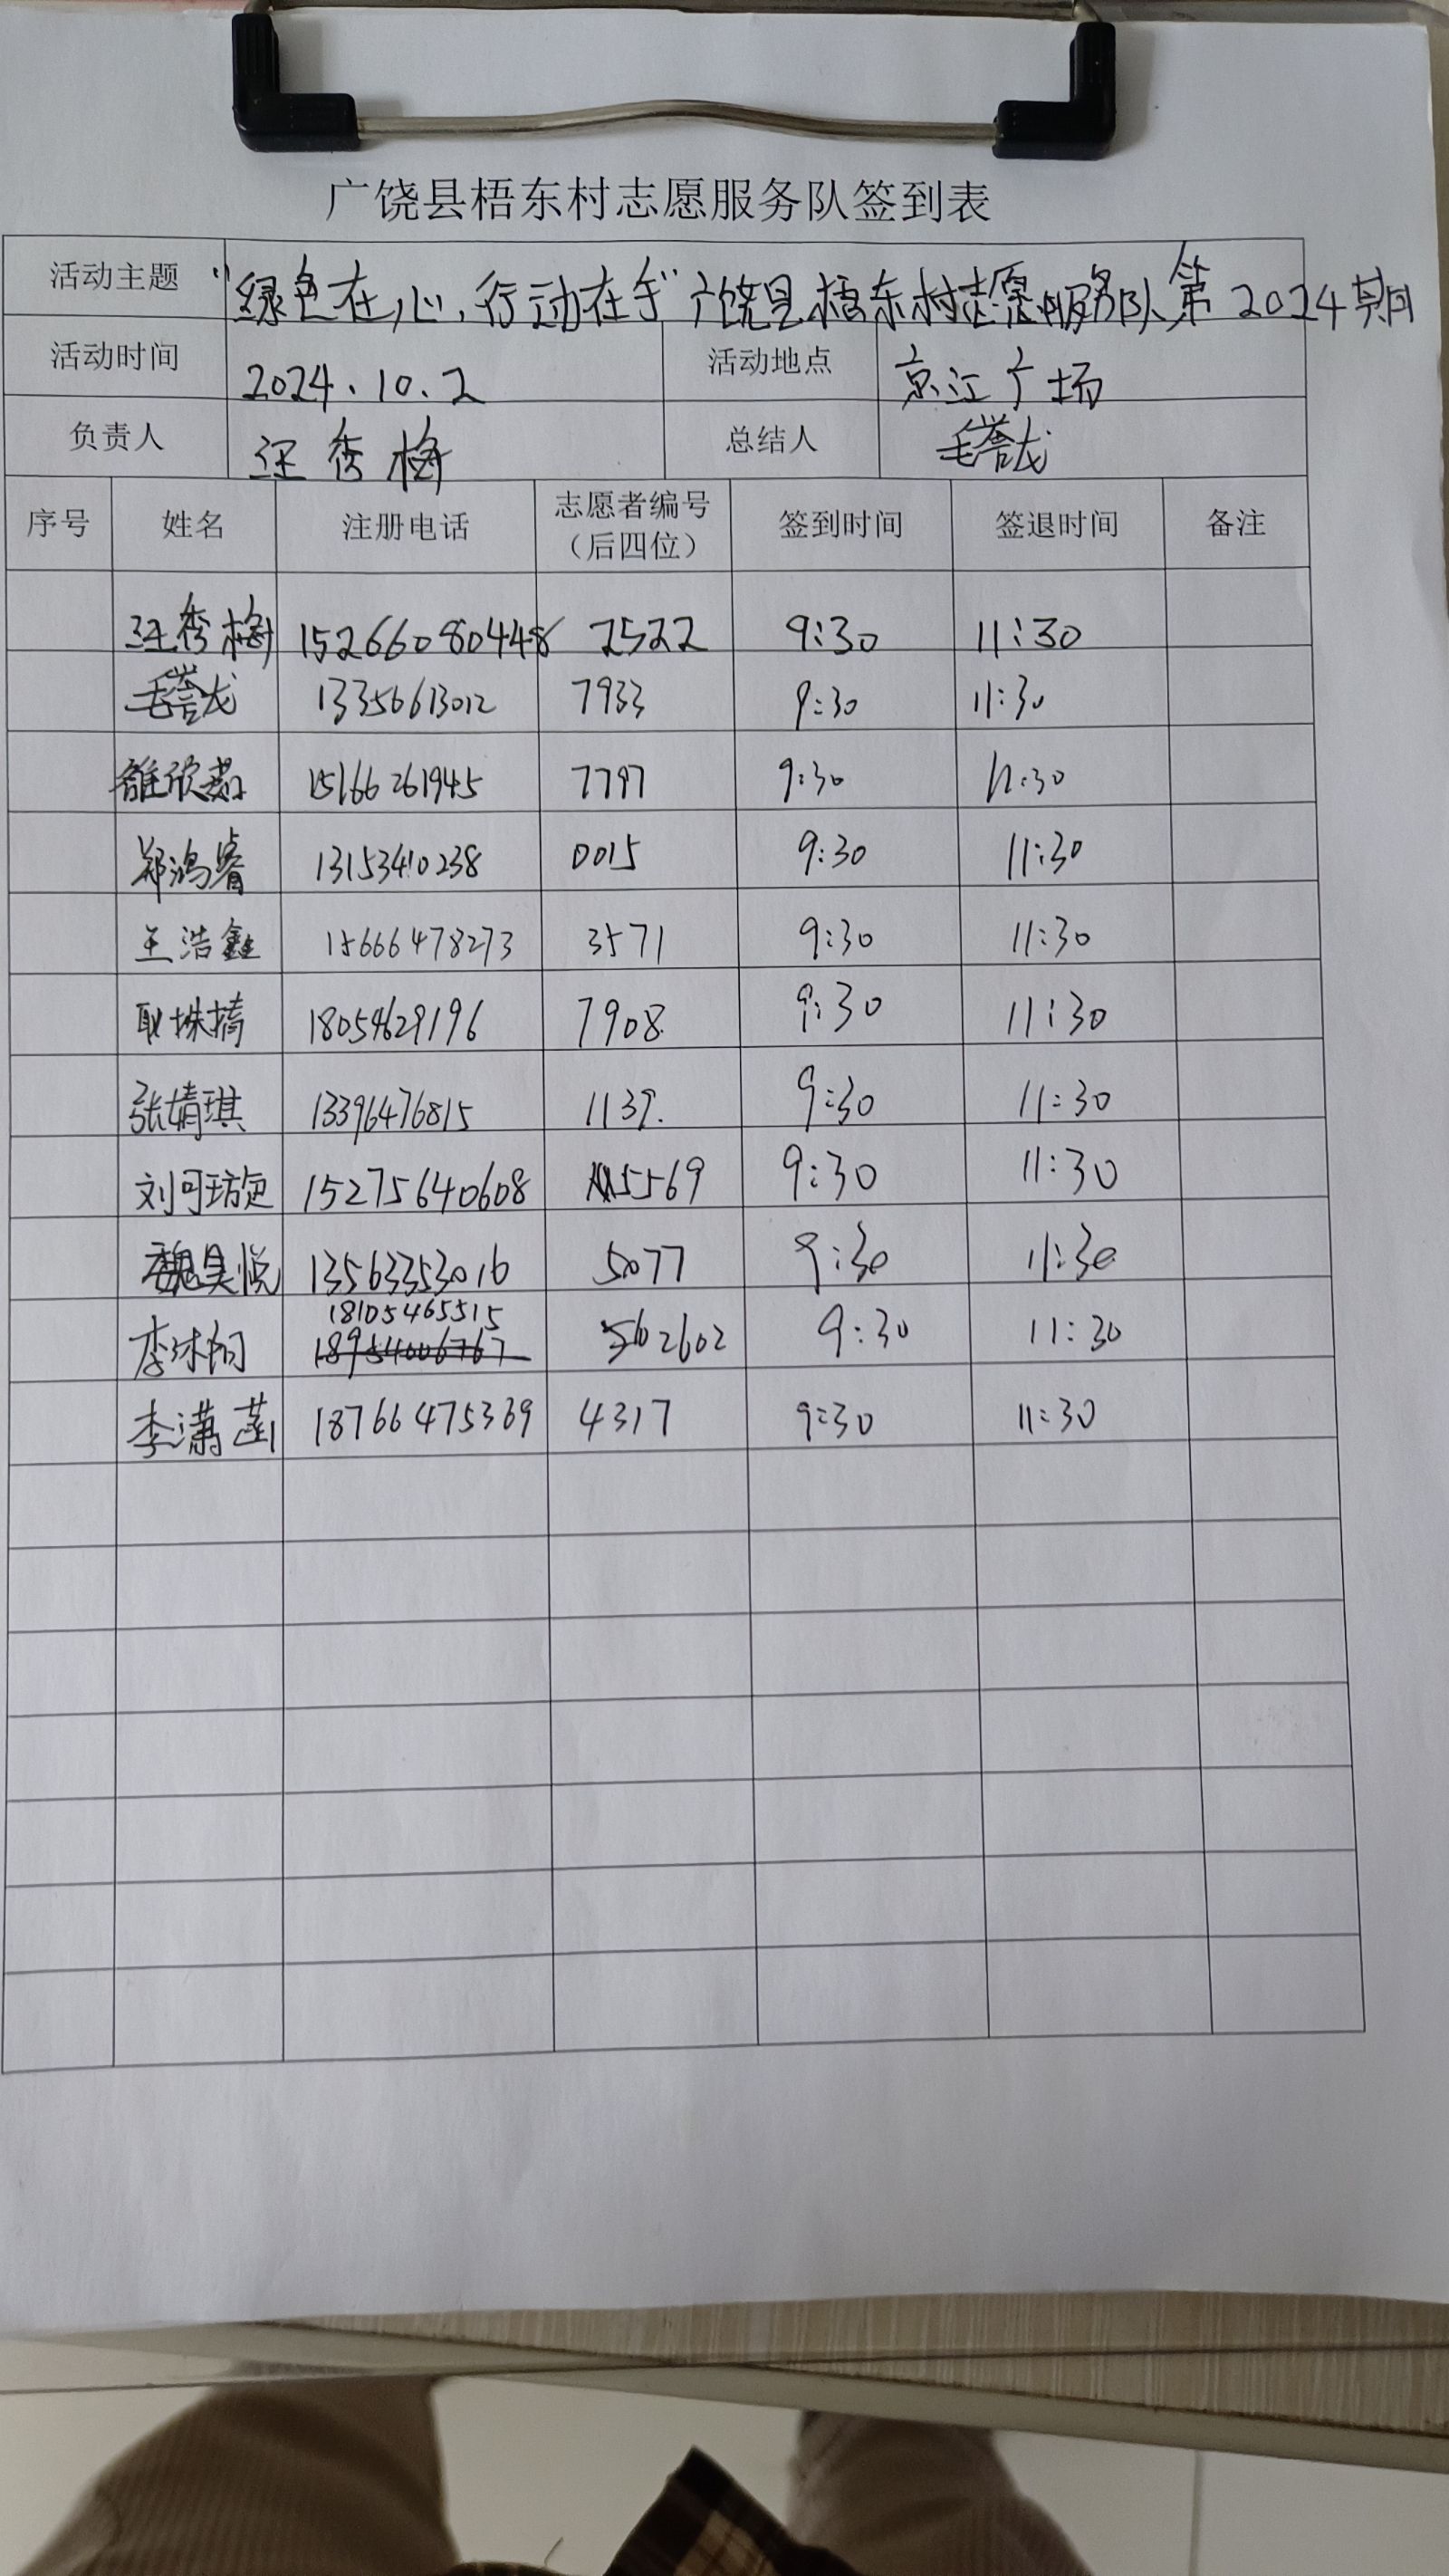 广饶县梧东村志愿服务队签到表
活动主题 "绿色在心,行动在手"广饶县梧东村志愿服务队第2024期
活动时间 2024.10.2 活动地点 京江广场
负责人 汪秀梅 总结人 毛誉龙
序号 姓名 注册电话 志愿者编号（后四位） 签到时间 签退时间 备注
汪秀梅 15266080448 2522 9:30 11:30
毛誉龙 13356613012 7933 9:30 11:30
15166261945 7797 9:30 11:30
郑鸿睿 13153410238 0015 9:30 11:30
王浩鑫 15666478273 3571 9:30 11:30
18054629196 7908 9:30 11:30
张婧琪 13396476815 1139. 9:30 11:30
刘可 15275640608 5569 9:30 11:30
魏昊悦 13563353016 5077 9:30 11:30
18105465515
18954006767 2602 9:30 11:30
李潇菡 18766475369 4317 9:30 11:30